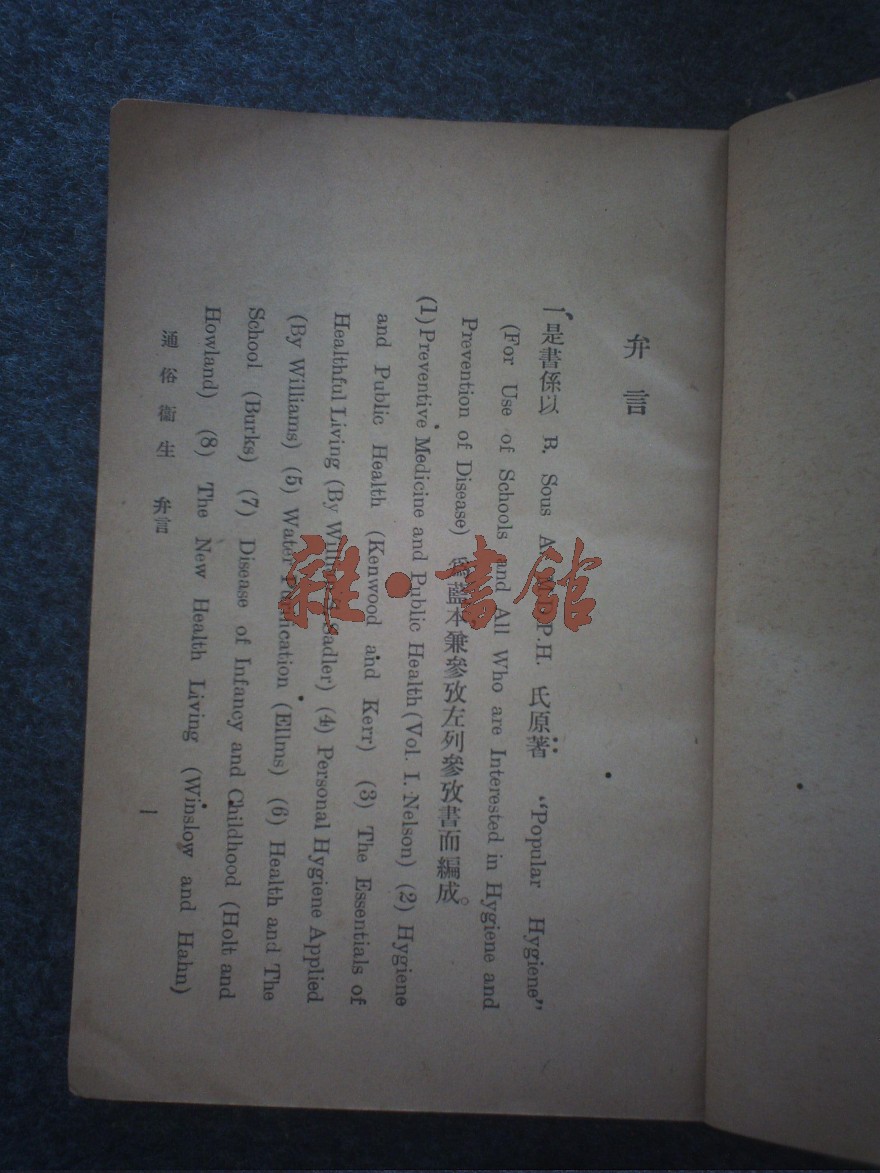 弁言
一、是書係以 B. Sous A. P.H. 氏原著 “Popular Hygiene”
(For Use of Schools and All Who are Interested in Hygiene and
Prevention of Disease) 爲藍本兼參攷左列參攷書而編成。
(1) Preventive Medicine and Public Health (Vol. I. Nelson) (2) Hygiene
and Public Health (Kenwood and Kerr) (3) The Essentials of
Healthful Living (By William S. Sadler) (4) Personal Hygiene Applied
(By Williams) (5) Water Purification (Ellms) (6) Health and The
School (Burks) (7) Disease of Infancy and Childhood (Holt and
Howland) (8) The New Health Living (Winslow and Hahn)
通俗衞生 弁言
1
雜·書館